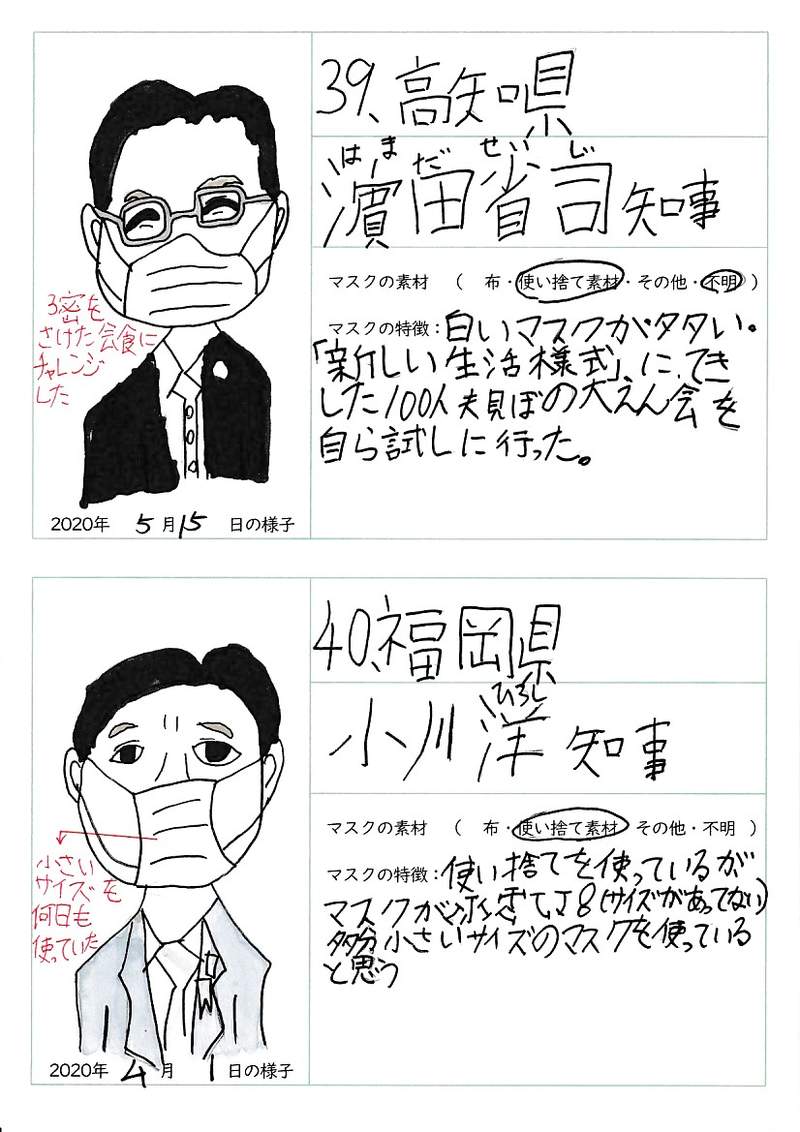 39、高知県
はまだ せいじ
濵田省司知事
マスクの素材 （ 布・使い捨て素材・その他・不明 ）
マスクの特徴：白いマスクが多い。
「新しい生活様式」にてき
した100人規ぼの大えん会を
自ら試しに行った。
3密を
さけた会食に
チャレンジ
した
2020年 5月15日の様子
40、福岡県
ひろし
小川 洋 知事
マスクの素材 （ 布・使い捨て素材・その他・不明 ）
マスクの特徴：使い捨てを使っているが
マスクが（サイズがあってない）
多分小さいサイズのマスクを使っている
と思う
小さい
サイズを
何日も
使っていた
2020年 4月 1日の様子